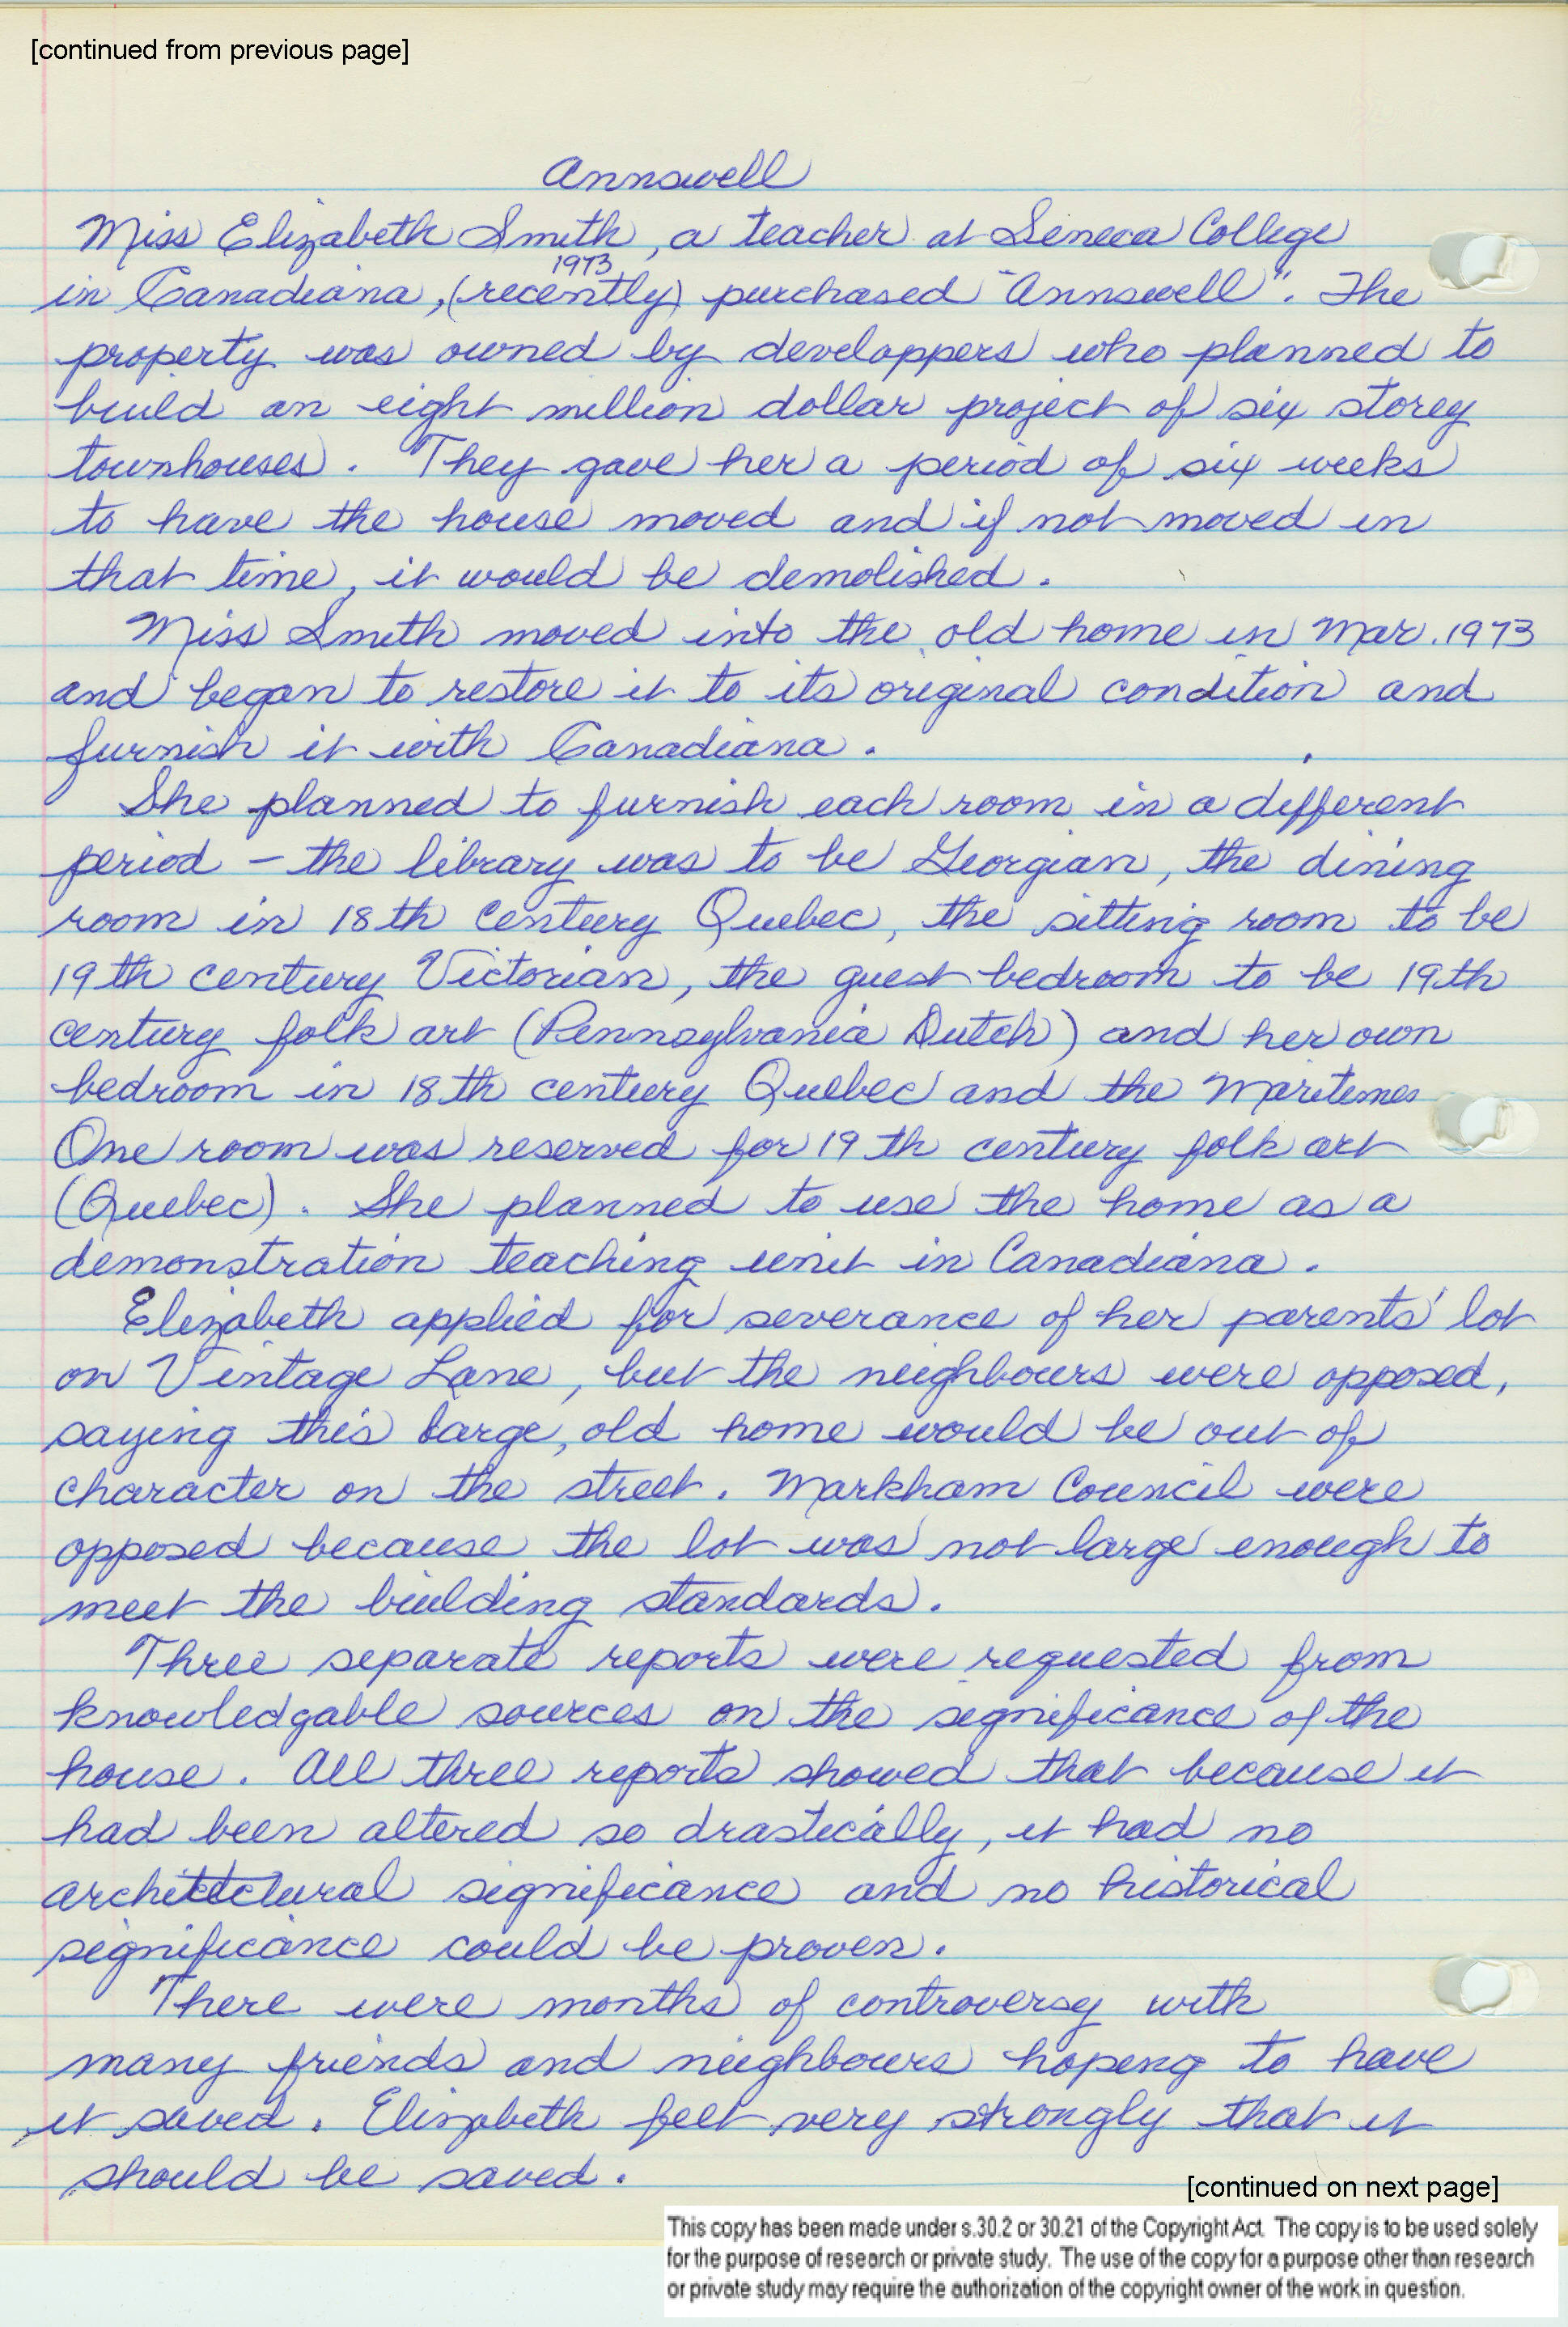 [continued from previous page]
Annswell
Miss Elizabeth Smith, a teacher at Seneca College
1973
in Canadiana, (recently) purchased "Annswell". The
property was owned by developpers who planned to
build an eight million dollar project of six storey
townhouses. They gave her a period of six weeks
to have the house moved and if not moved in
that time, it would be demolished.
Miss Smith moved into the old home in Mar. 1973
and began to restore it to its original condition and
furnish it with Canadiana.
She planned to furnish each room in a different
period – the library was to be Georgian, the dining
room in 18th century Quebec, the sitting room to be
19th century Victorian, the guest bedroom to be 19th
century folk art (Pennsylvania Dutch) and her own
bedroom in 18th century Quebec and the Maritimes
One room was reserved for 19th century folk art
(Quebec). She planned to use the home as a
demonstration teaching unit in Canadiana.
Elizabeth applied for severance of her parents' lot
on Vintage Lane, but the neighbours were opposed,
saying this large, old home would be out of
character on the street. Markham Council were
opposed because the lot was not large enough to
meet the building standards.
Three separate reports were requested from
knowledgable sources on the significance of the
house. All three reports showed that because it
had been altered so drastically, it had no
architectural significance and no historical
significance could be proven.
There were months of controversy with
many friends and neighbours hoping to have
it saved. Elizabeth felt very strongly that it
should be saved.
[continued on next page]
This copy has been made under s.30.2 or 30.21 of the Copyright Act. The copy is to be used solely
for the purpose of research or private study. The use of the copy for a purpose other than research
or private study may require the authorization of the copyright owner of the work in question.